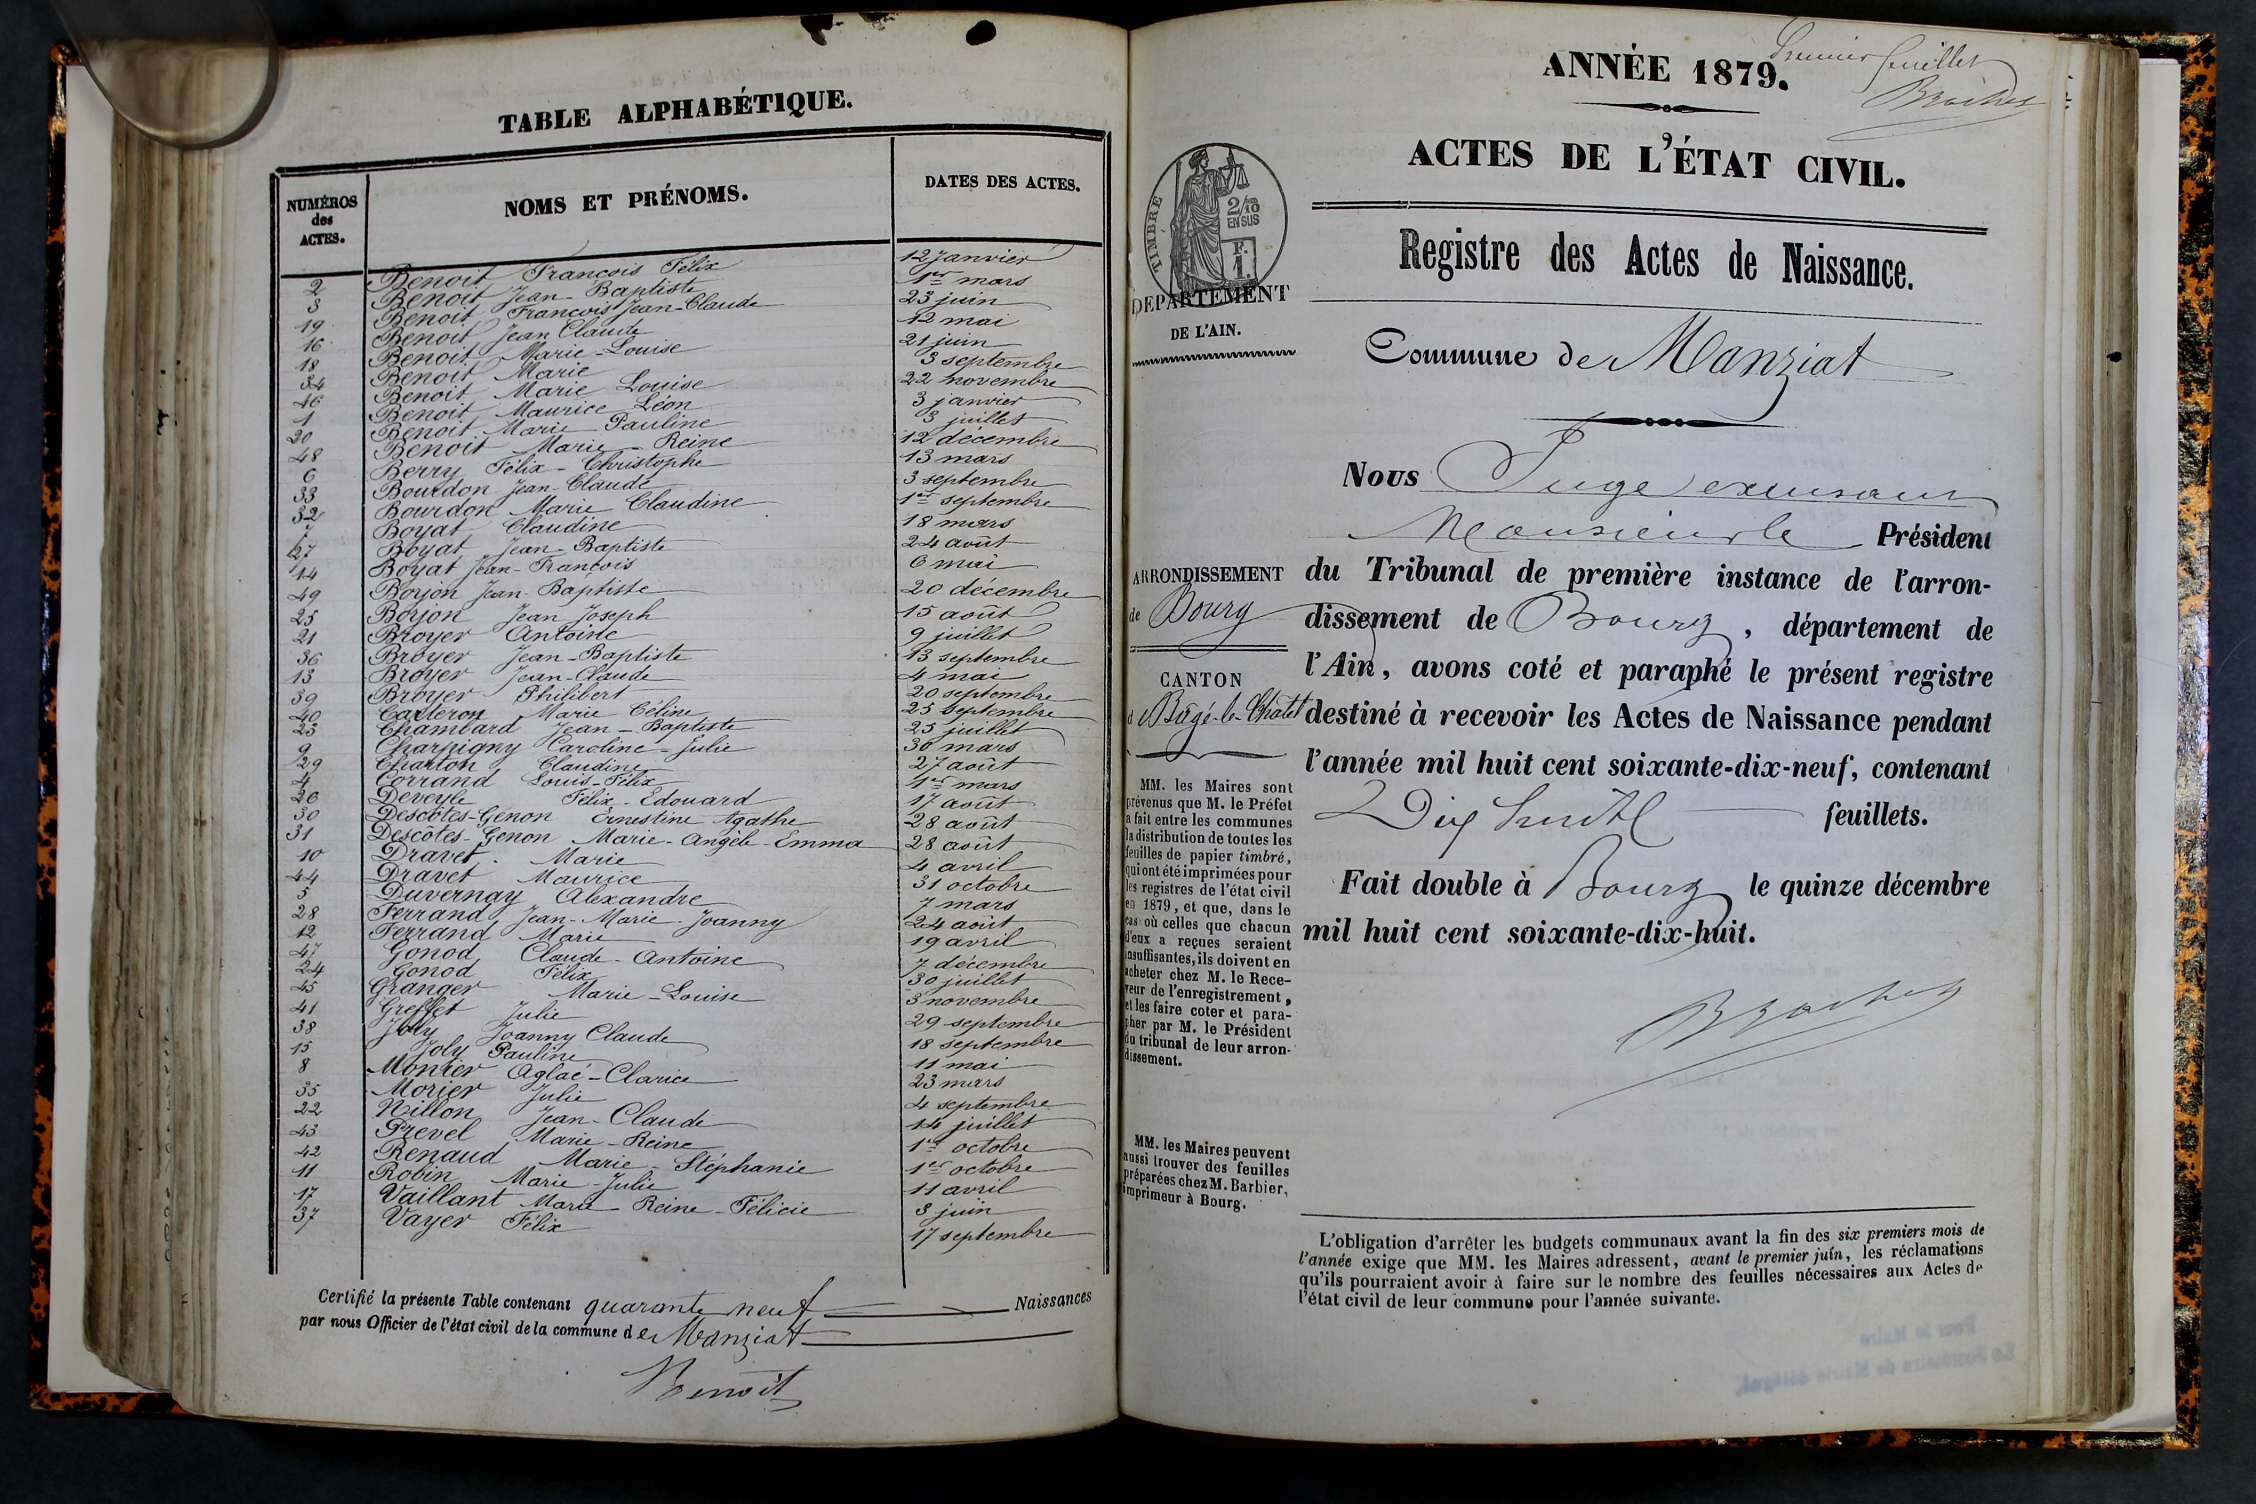 TABLE ALPHABÉTIQUE.
NUMÉROS des ACTES. NOMS ET PRÉNOMS. DATES DES ACTES.
2 Benoit François Félix 12 Janvier
3 Benoit Jean-Baptiste 1er mars
19 Benoit François Jean-Claude 23 juin
16 Benoit Jean Claude 12 mai
18 Benoit Marie-Louise 21 juin
34 Benoit Marie 3 septembre
46 Benoit Marie Louise 22 novembre
1 Benoit Maurice Léon 3 janvier
20 Benoit Marie Pauline 3 juillet
48 Benoit Marie Reine 12 décembre
6 Berry Félix-Christophe 13 mars
33 Bourdon Jean-Claude 3 septembre
32 Bourdon Marie Claudine 1er septembre
7 Boyat Claudine 18 mars
27 Boyat Jean-Baptiste 24 août
14 Boyat Jean-François 6 mai
49 Borjon Jean-Baptiste 20 décembre
25 Borjon Jean Joseph 15 août
21 Broyer Antoine 9 juillet
36 Broyer Jean-Baptiste 13 septembre
13 Broyer Jean-Claude 4 mai
39 Broyer Philibert 20 septembre
40 Carteron Marie Céline 25 septembre
23 Chambard Jean-Baptiste 25 juillet
9 Charpigny Caroline-Julie 30 mars
29 Charton Claudine 27 août
4 Corrand Louis-Félix 1er mars
26 Deveyle Félix-Edouard 17 août
30 Descotes-Genon Ernestine Agathe 28 août
31 Descotes-Genon Marie-Angèle-Emma 28 août
10 Dravet Marie 4 avril
44 Dravet Maurice 31 octobre
5 Duvernay Alexandre 7 mars
28 Ferrand Jean-Marie-Joanny 24 août
12 Ferrand Marie 19 avril
47 Gonod Claude-Antoine 7 décembre
24 Gonod Félix 30 juillet
45 Granger Marie-Louise 3 novembre
41 Greffet Julie 29 septembre
38 Joly Joanny Claude 18 septembre
15 Joly Pauline 11 mai
8 Monter Aglaé-Clarice 23 mars
35 Morier Julie 4 septembre
22 Nillon Jean-Claude 14 juillet
43 Prevel Marie-Reine 1er octobre
42 Renaud Marie-Stéphanie 1er octobre
11 Robin Marie-Julie 11 avril
17 Vaillant Marie-Reine-Félicie 3 juin
37 Vayer Félix 17 septembre
Certifié la présente Table contenant quarante neuf Naissances
par nous Officier de l'état civil de la commune de Manziat
Benoit
Premier feuillet
ANNÉE 1879.
ACTES DE L'ÉTAT CIVIL.
TIMBRE
2/10 EN SUS
F. 1.
DÉPARTEMENT
DE L'AIN.
Registre des Actes de Naissance.
Commune de Manziat
Nous Juge
Monsieur le Président
ARRONDISSEMENT
de Bourg
CANTON
de Bâgé-le-Châtel
du Tribunal de première instance de l'arron-
dissement de Bourg, département de
l'Ain, avons coté et paraphé le présent registre
destiné à recevoir les Actes de Naissance pendant
l'année mil huit cent soixante-dix-neuf, contenant
Dix huit feuillets.
Fait double à Bourg le quinze décembre
mil huit cent soixante-dix-huit.
MM. les Maires sont
prévenus que M. le Préfet
a fait entre les communes
la distribution de toutes les
feuilles de papier timbré,
qui ont été imprimées pour
les registres de l'état civil
en 1879, et que, dans le
cas où celles que chacun
d'eux a reçues seraient
insuffisantes, ils doivent en
acheter chez M. le Rece-
veur de l'enregistrement,
et les faire coter et para-
pher par M. le Président
du tribunal de leur arron-
dissement.
MM. les Maires peuvent
aussi trouver des feuilles
préparées chez M. Barbier,
imprimeur à Bourg.
L'obligation d'arrêter les budgets communaux avant la fin des six premiers mois de
l'année exige que MM. les Maires adressent, avant le premier juin, les réclamations
qu'ils pourraient avoir à faire sur le nombre des feuilles nécessaires aux Actes de
l'état civil de leur commune pour l'année suivante.